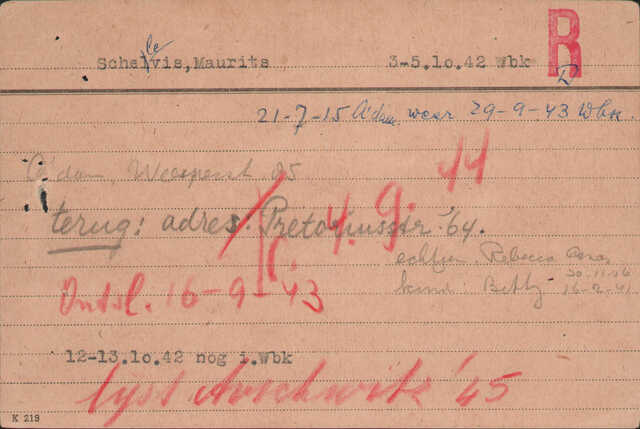 Schelvis, Maurits 3-5.10.42 Wbk R
21-7-15 A'dam. weer 29-9-43 Wbk.
A'dam, Weesperst 85
terug: adres. Pretoriusstr. '64.
4.9.44
echtgen. Rebecca
20.11.16
kind: Betty 16-2-41
Ontsl. 16-9-43
12-13.10.42 nog i.Wbk
lyst Auschwitz '45
K 219